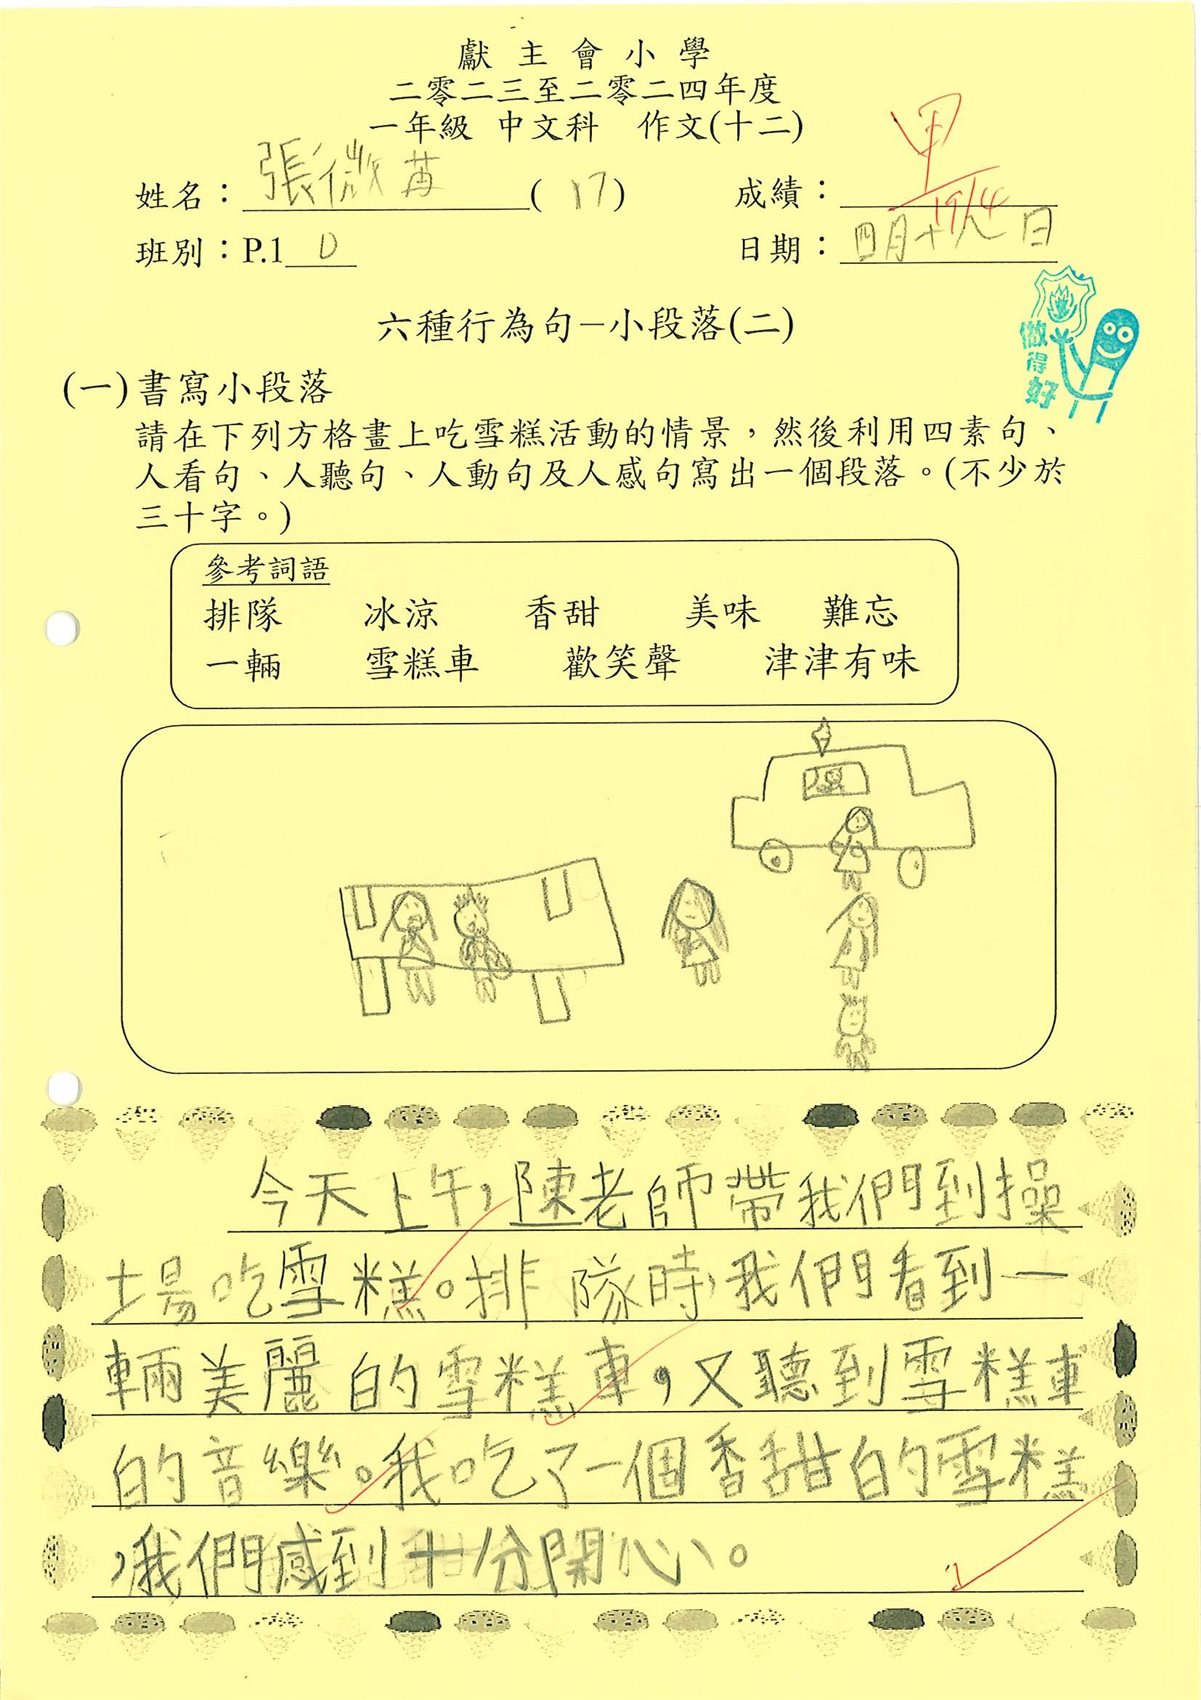 獻主會小學
二零二三至二零二四年度
一年級 中文科 作文(十二)
姓名：張微苒(17) 成績：甲 19/4
班別：P.1 D 日期：四月十八日
做得好
六種行為句–小段落(二)
(一)書寫小段落
請在下列方格畫上吃雪糕活動的情景，然後利用四素句、
人看句、人聽句、人動句及人感句寫出一個段落。(不少於
三十字。)
參考詞語
排隊 冰涼 香甜 美味 難忘
一輛 雪糕車 歡笑聲 津津有味
今天上午，陳老師帶我們到操
場吃雪糕。排隊時，我們看到一
輛美麗的雪糕車，又聽到雪糕車
的音樂。我吃了一個香甜的雪糕
，我們感到十分開心。